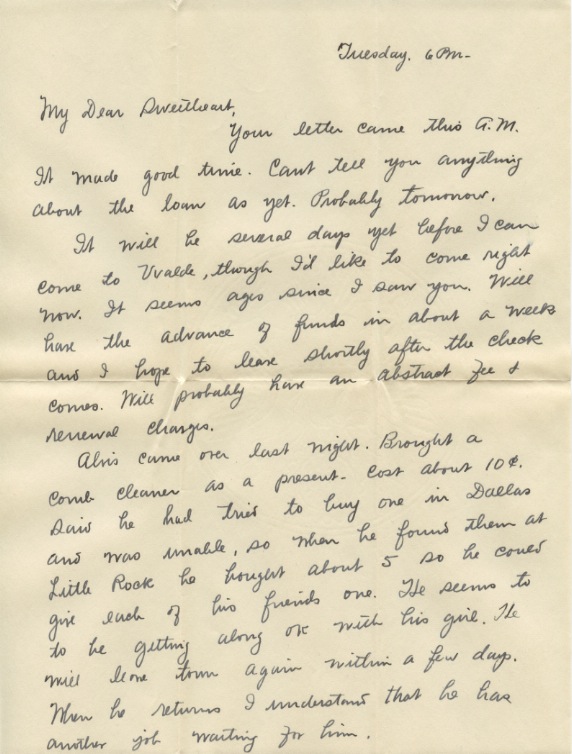 Tuesday. 6 PM-
My Dear Sweetheart,
Your letter came this A.M.
It made good time. Cant tell you anything
about the loan as yet. Probably tomorrow.
It will be several days yet before I can
come to Uvalde, though I'd like to come right
now. It seems ages since I saw you. Will
have the advance of funds in about a week
and I hope to leave shortly after the check
comes. Will probably have an abstract fee &
renewal charges.
Alvis came over last night. Brought a
comb cleaner as a present. Cost about 10¢.
Said he had tried to buy one in Dallas
and was unable, so when he found them at
Little Rock he bought about 5 so he could
give each of his friends one. He seems to
to be getting along ok with his girl. He
will leave town again within a few days.
When he returns I understand that he has
another job waiting for him.